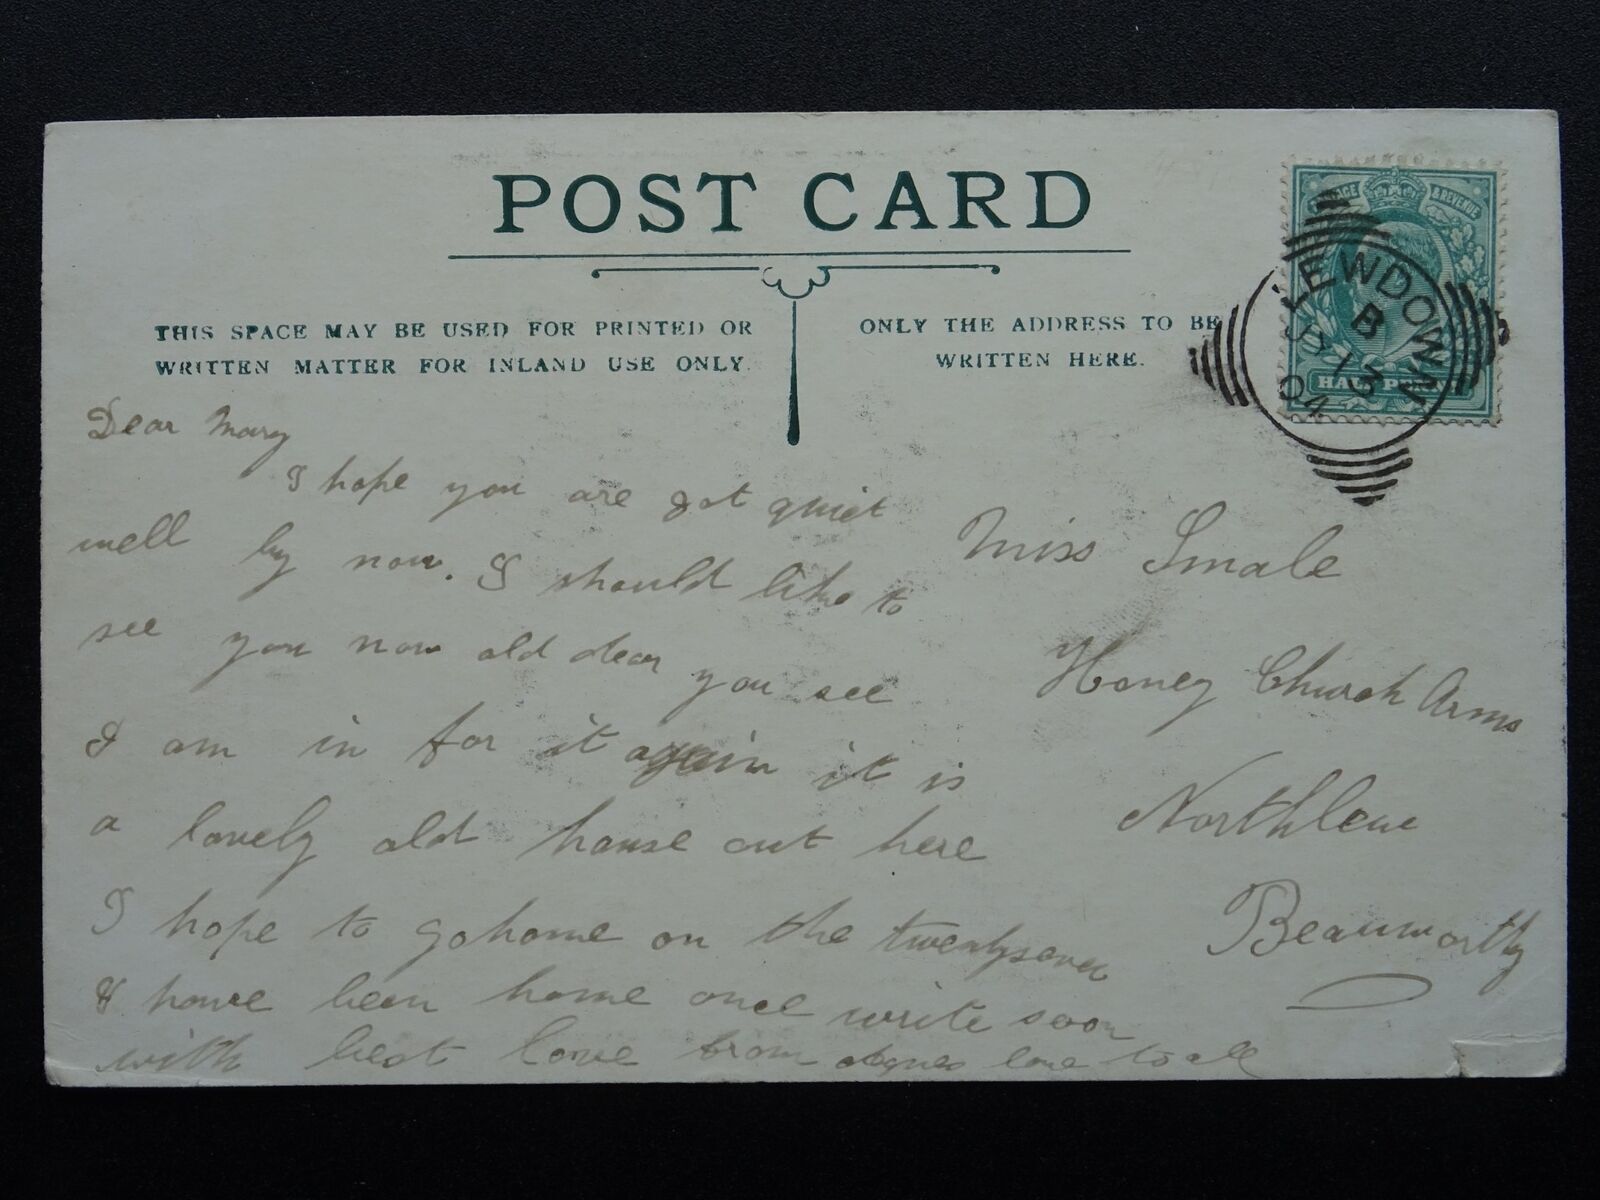 POST CARD
THIS SPACE MAY BE USED FOR PRINTED OR
WRITTEN MATTER FOR INLAND USE ONLY.
ONLY THE ADDRESS TO BE
WRITTEN HERE.
POSTAGE & REVENUE
HALF PENNY
LEWDOWN
B
SP 13
04
Dear Mary
I hope you are got quiet
well by now. I should like to
see you now old dear you see
I am in for it again it is
a lovely old house out here
I hope to go home on the twentyseven
I have been home once write soon
with best love from Agnes love to all
Miss Smale
Honey Church Arms
Northlew
Beauworthy